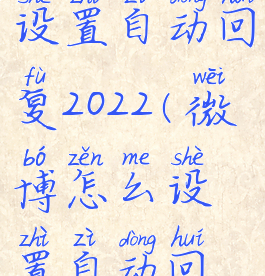 shè zhì zì dòng huí
设置自动回
fù wēi
复2022(微
bó zěn me shè
博怎么设
zhì zì dòng huí
置自动回